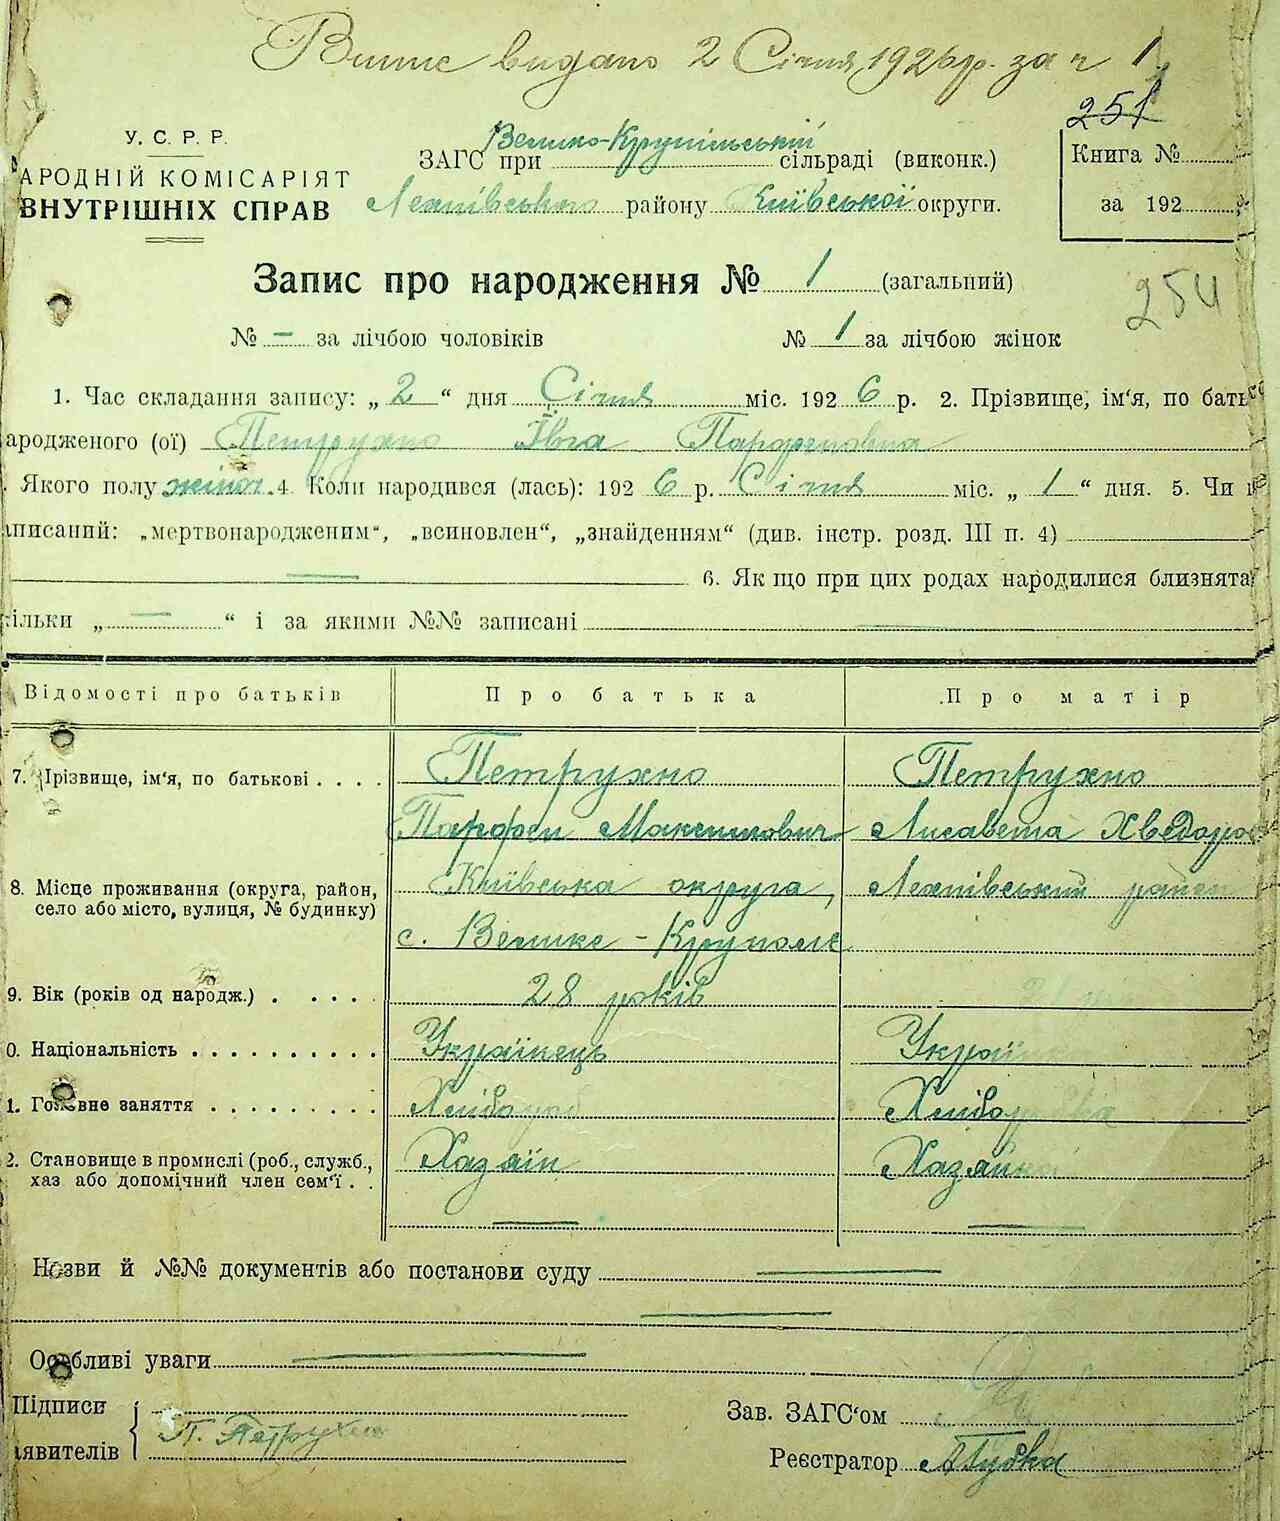 Випис видано 2 Січня 1926 р. за ч 1.
251
У. С. Р. Р.
АРОДНІЙ КОМІСАРІЯТ
ВНУТРІШНІХ СПРАВ
ЗАГС при Велико-Крупільській сільраді (виконк.)
района Київської округи.
Книга №
за 192
Запис про народження № 1 (загальний)
254
№ — за лічбою чоловіків № 1 за лічбою жінок
1. Час складання запису: „ 2 “ дня Січня міс. 192 6 р. 2. Прізвище, ім'я, по бать
ародженого (ої) Петрухно Ївга Парфеновна
. Якого полу жіноч. 4 Коли народився (лась): 192 6 р. Січня міс. „ 1 “ дня. 5. Чи
аписаний: „мертвонародженим“, „всиновлен“, „знайденням“ (див. інстр. розд. III п. 4)
— 6. Як що при цих родах народилися близнята
ільки „ — “ і за якими №№ записані —
Відомості про батьків Про батька Про матір
7. Прізвище, ім'я, по батькові . . . . Петрухно Петрухно
Парфен Максимович Лисавета Хведоров
8. Місце проживання (округа, район, Київська округа, район
село або місто, вулиця, № будинку)
с. Велике-Круполе
9. Вік (років од народж.) . . . . . 28 років
0. Національність . . . . . . . . . . Українець Украї
1. Головне заняття . . . . . . . . . Хлібороб Хліборобка
2. Становище в промислі (роб., служб., Хазяїн Хазяйка
хаз або допомічний член сем'ї . .
— —
Назви й №№ документів або постанови суду —
—
Особливі уваги —
Підписи
П. Петрухно
аявителів
Зав. ЗАГС'ом
Реєстратор